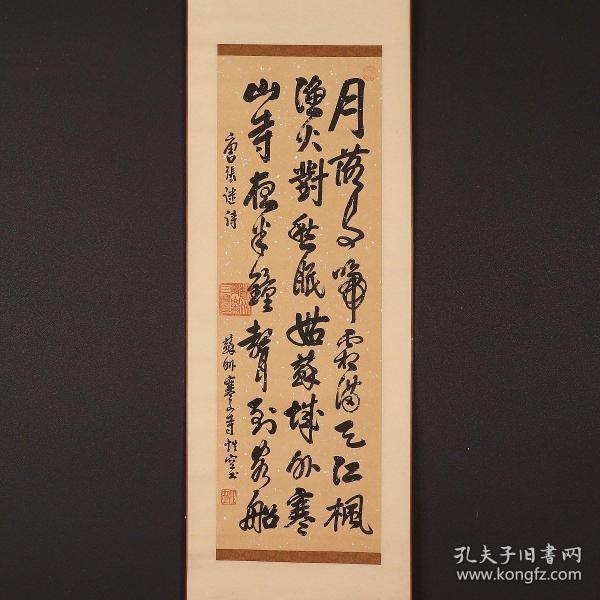 月落乌啼霜満天江楓
漁火對愁眠姑蘇城外寒
山寺夜半鐘聲到客船
唐張继诗
蘇州寒山寺性空书
孔夫子旧書网
www.kongfz.com